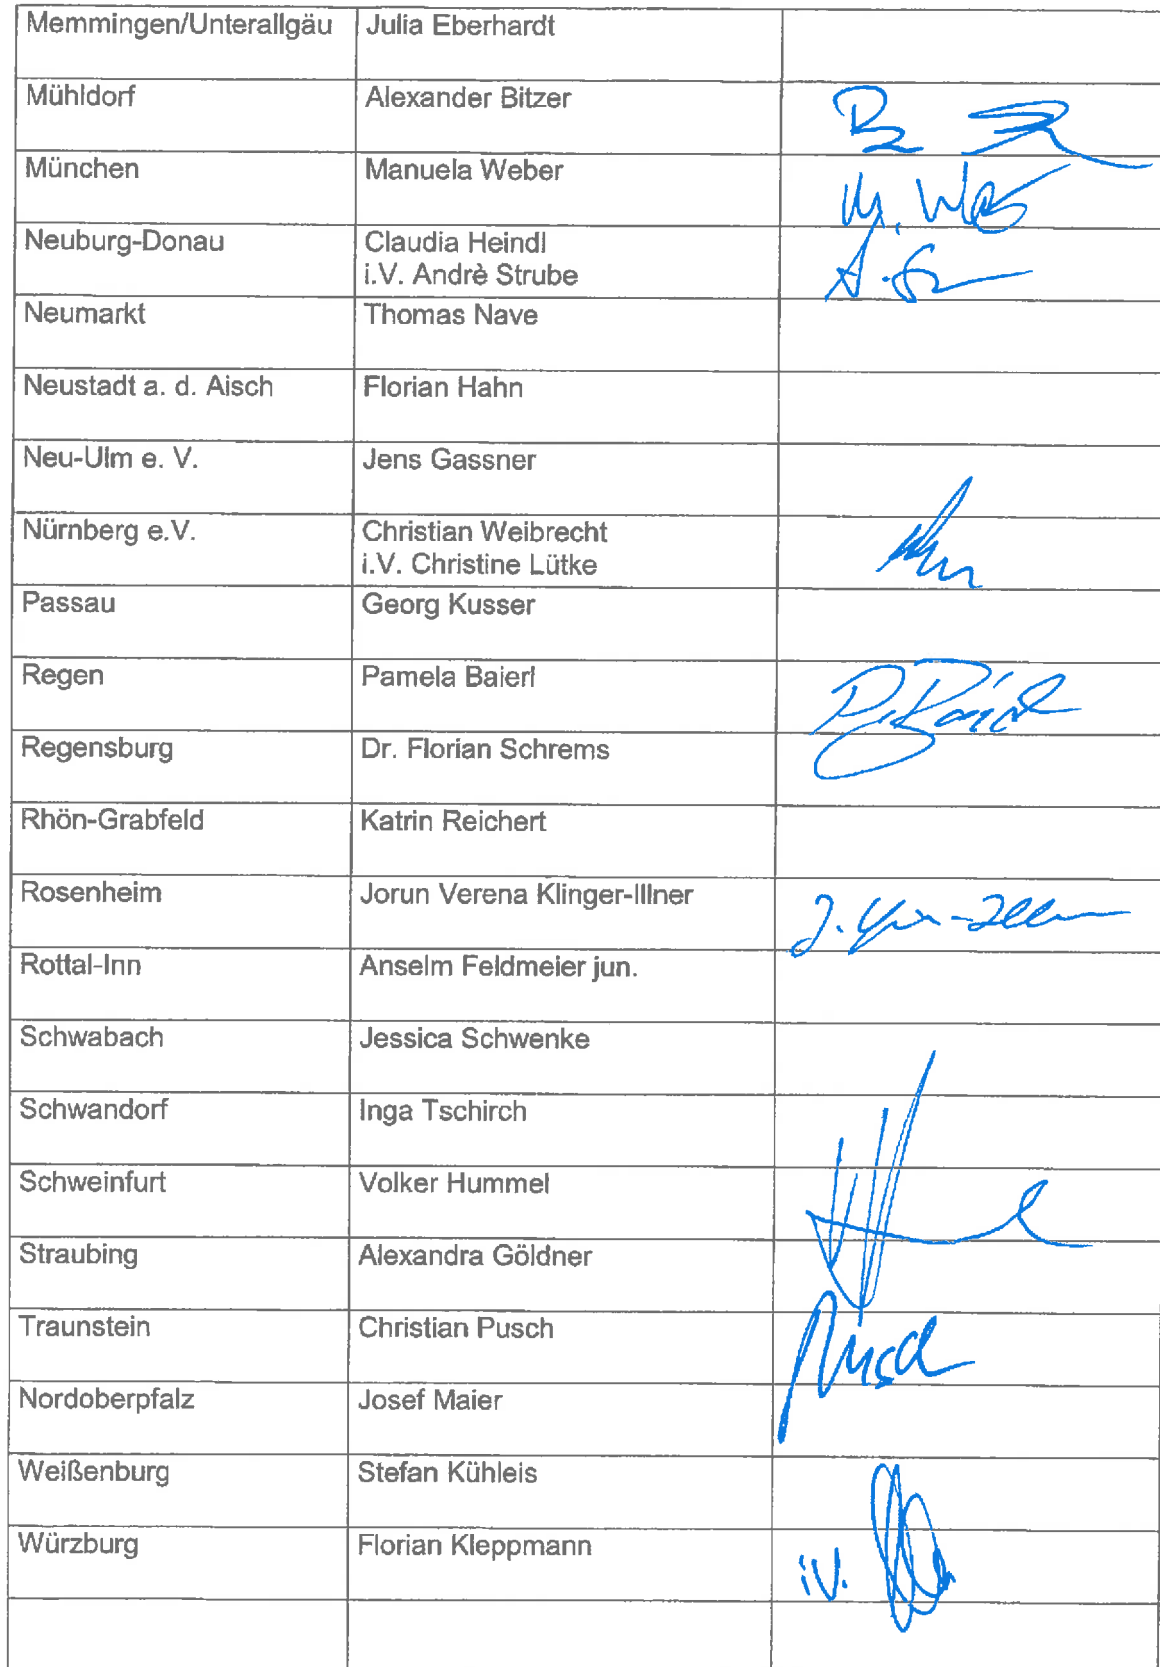 Memmingen/Unterallgäu Julia Eberhardt
Mühldorf Alexander Bitzer
München Manuela Weber M. Web
Neuburg-Donau Claudia Heindl
i.V. Andrè Strube
Neumarkt Thomas Nave
Neustadt a. d. Aisch Florian Hahn
Neu-Ulm e. V. Jens Gassner
Nürnberg e.V. Christian Weibrecht
i.V. Christine Lütke
Passau Georg Kusser
Regen Pamela Baierl
Regensburg Dr. Florian Schrems
Rhön-Grabfeld Katrin Reichert
Rosenheim Jorun Verena Klinger-Illner
Rottal-Inn Anselm Feldmeier jun.
Schwabach Jessica Schwenke
Schwandorf Inga Tschirch
Schweinfurt Volker Hummel
Straubing Alexandra Göldner
Traunstein Christian Pusch Pusch
Nordoberpfalz Josef Maier
Weißenburg Stefan Kühleis
Würzburg Florian Kleppmann i.V.